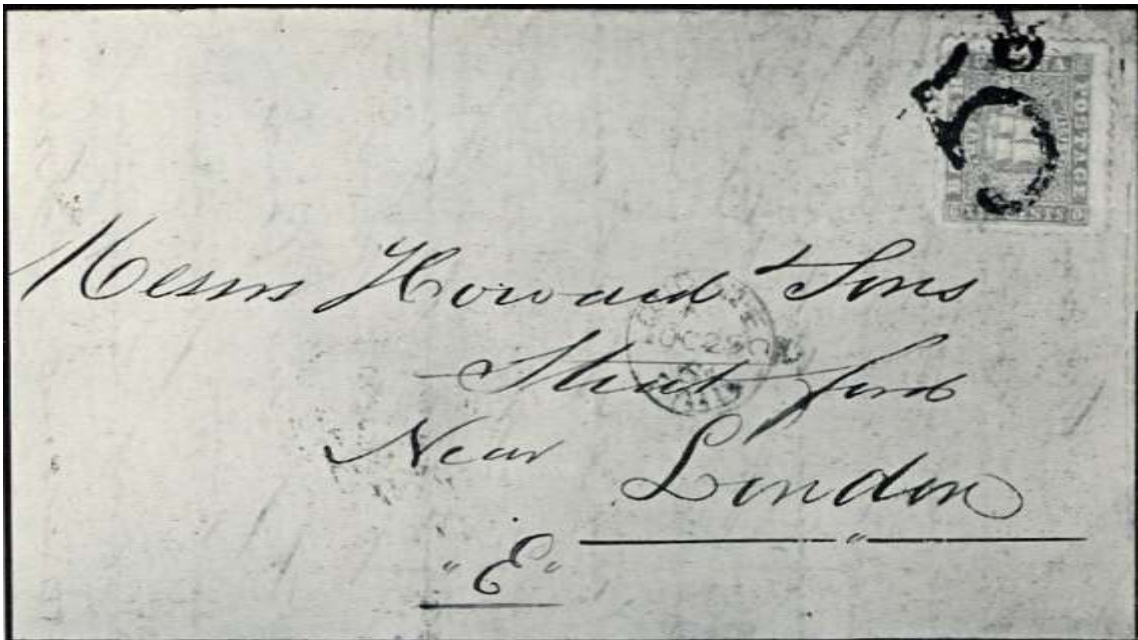 POSTAGE
CENTS
Messrs Howard & Sons
Stratford
Near London
"E"